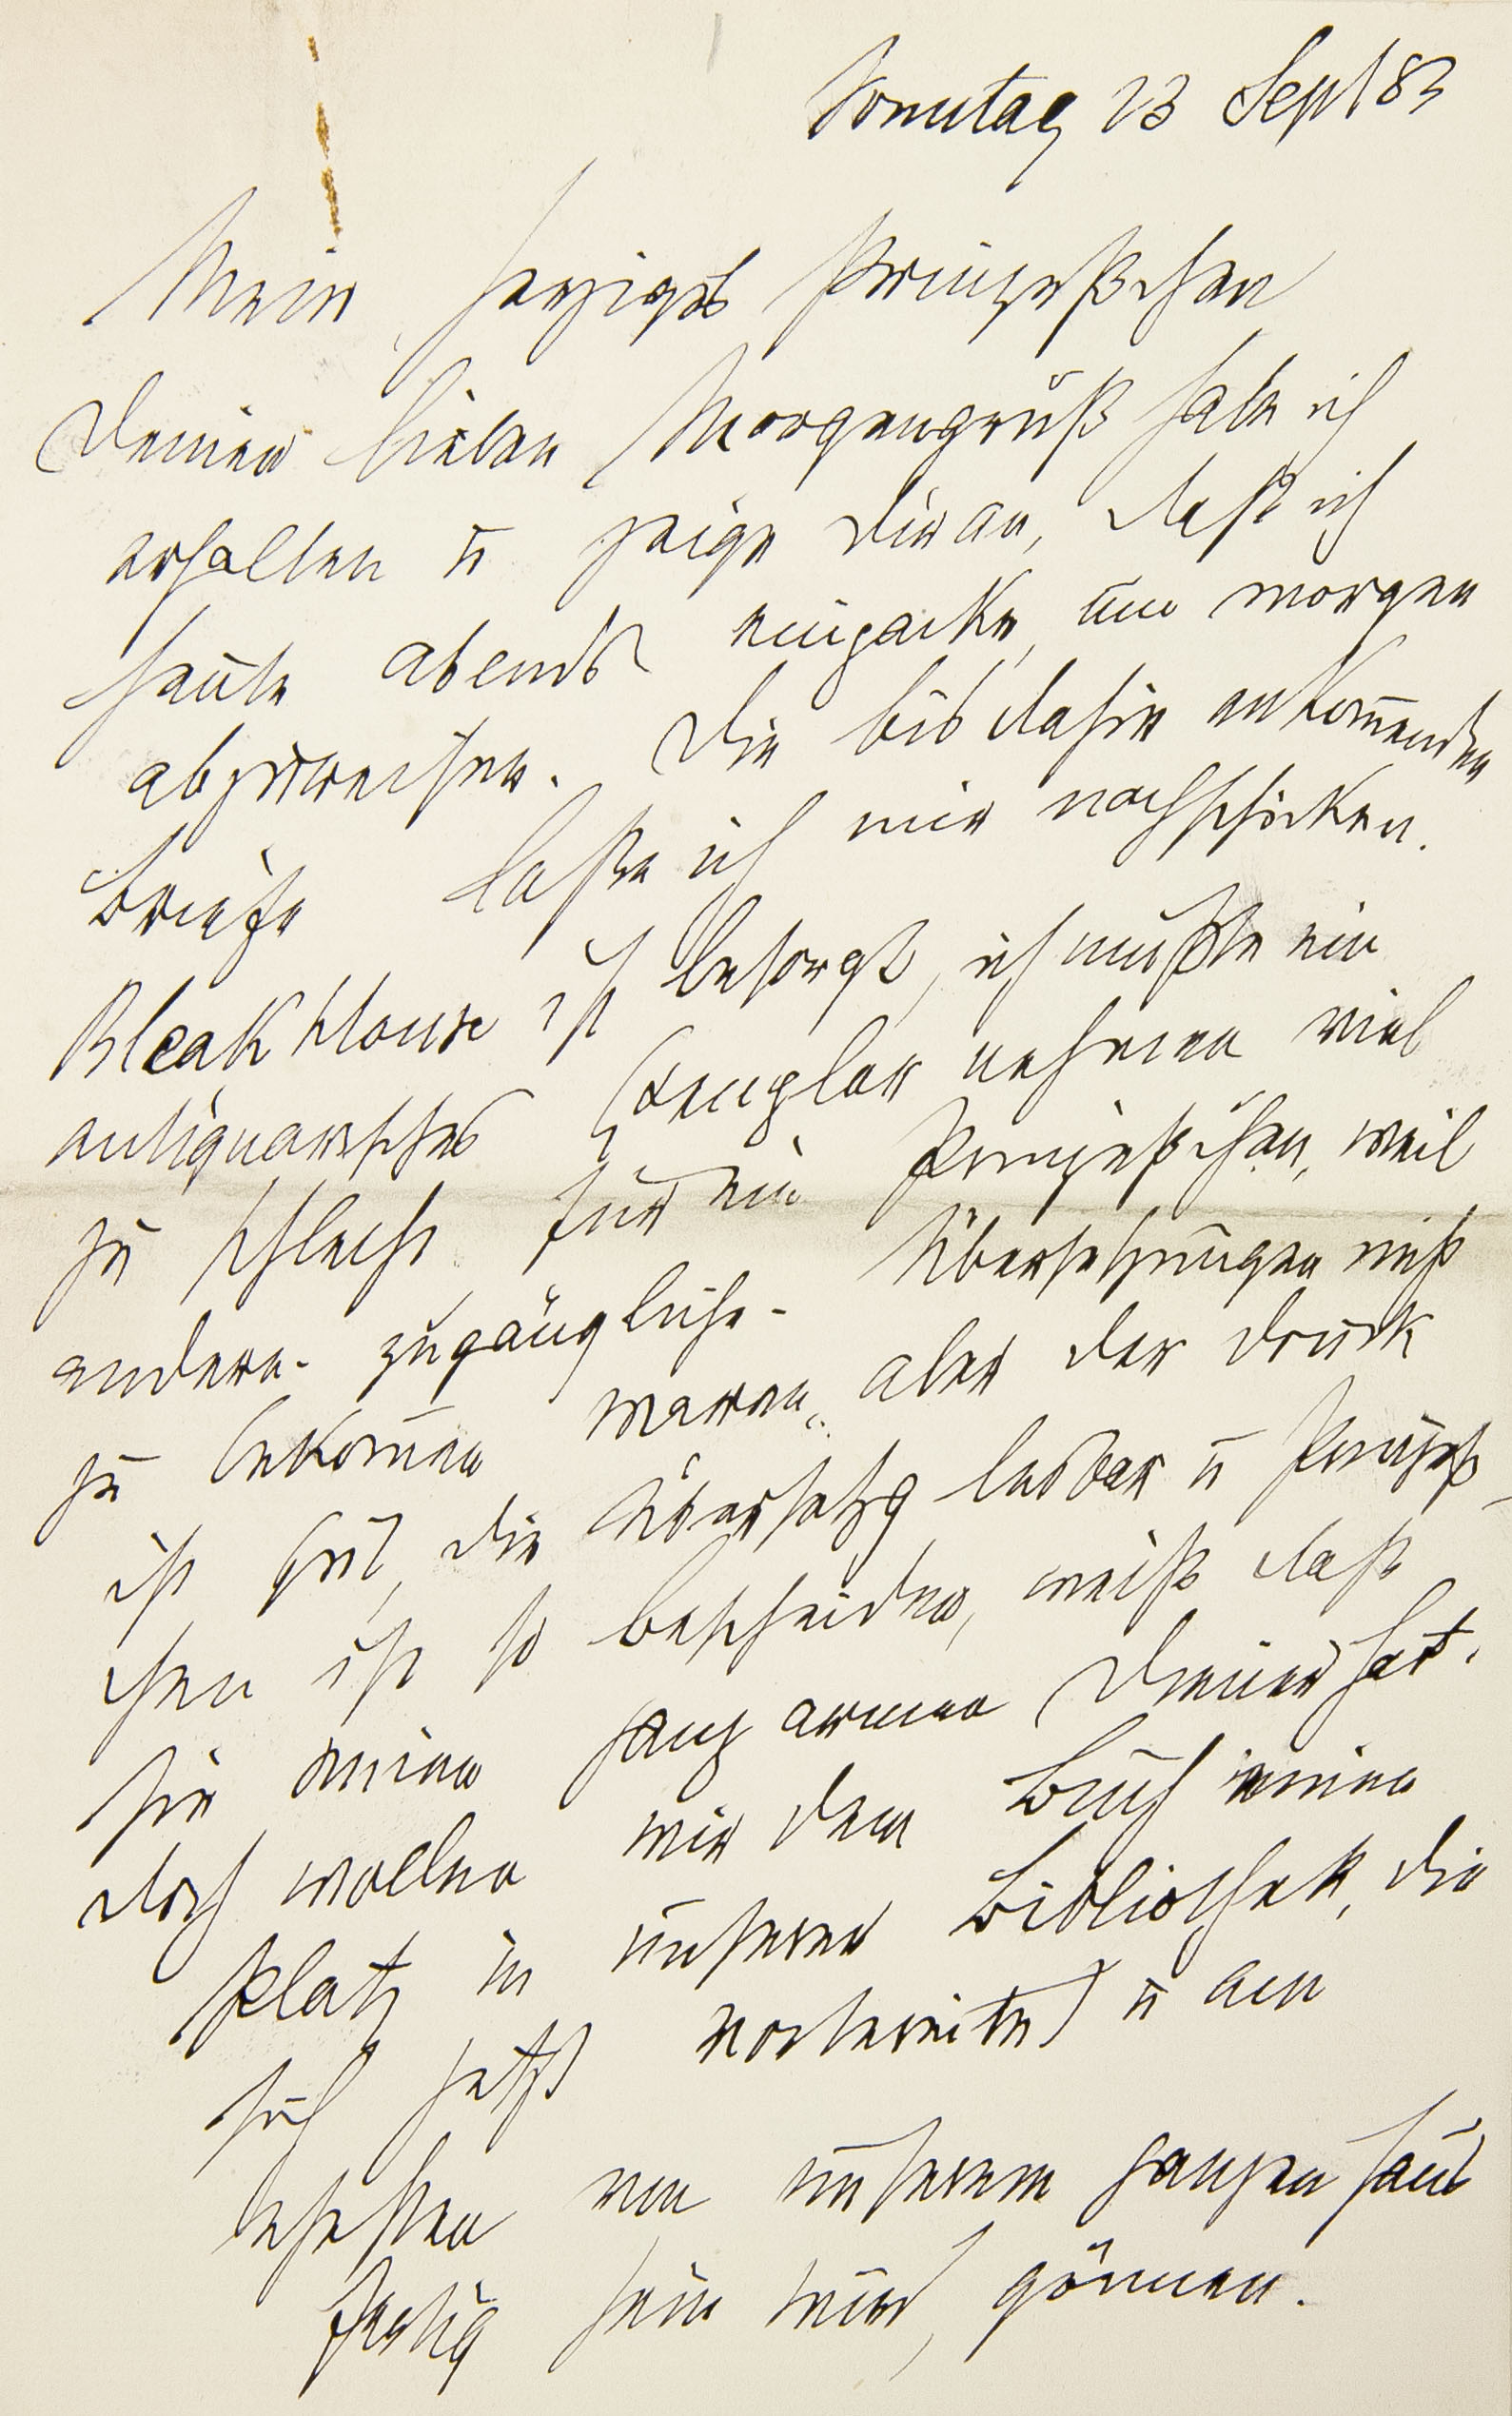 Sonntag 23 Sept 83
Mein herziges Prinzeßchen
Deinen lieben Morgengruß habe ich
erhalten u zeige Dir an, daß ich
heute abends einpacke, um morgen
abzureisen. Die bis dahin ankom̅enden
Briefe laße ich mir nachschicken.
Bleak House ist besorgt, ich mußte ein
antiquarisches Exemplar nehmen viel
zu schlecht für ein Prinzeßchen, weil
andere zugängliche Übersetzungen nicht
zu bekom̅en waren, aber der Druck
ist gut, die Übersetzg lesbar u Prinzeß-
chen ist so bescheiden, weiß daß
sie einen ganz armen Diener hat.
doch wollen wir dem Buch einen
Platz in unserer Bibliothek, die
sich jetzt vorbereitet u am
ehesten von unserem ganzen Haus
fertig sein wird, gönnen.